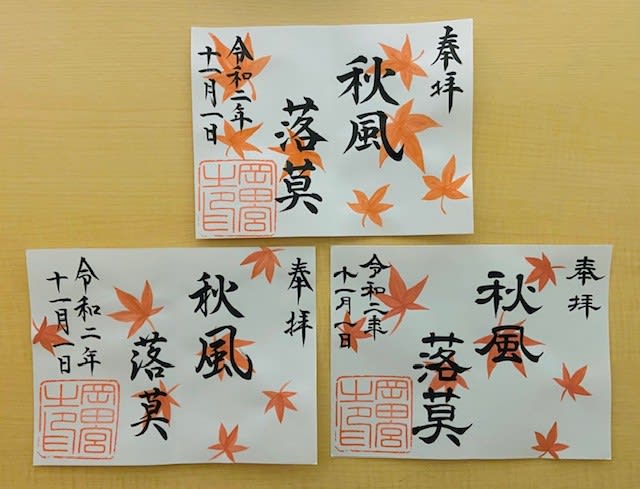 奉拝
秋風
落莫
令和二年
十一月一日
岡田宮
奉拝
秋風
落莫
令和二年
十一月一日
岡田宮
奉拝
秋風
落莫
令和二年
十一月一日
岡田宮